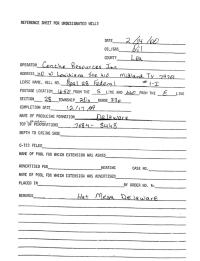 REFERENCE SHEET FOR UNDESIGNATED WELLS
DATE 2/04/00
OIL/GAS Oil
COUNTY Lea
OPERATOR Concho Resources Inc
ADDRESS W Louisiana Ste 410 Midland TX 79701
LEASE NAME, WELL NO. 28 Federal
FOOTAGE LOCATION 1650 FROM THE S LINE AND 660 FROM THE E LINE
SECTION 28 TOWNSHIP RANGE
COMPLETION DATE 12/17/99
NAME OF PRODUCING FORMATION Delaware
TOP OF PERFORATIONS 7084-
DEPTH TO CASING SHOE
C-123 FILED
NAME OF POOL FOR WHICH EXTENSION WAS ASKED
ADVERTISED FOR HEARING CASE NO.
NAME OF POOL FOR WHICH EXTENSION WAS ADVERTISED
PLACED IN BY ORDER NO. R-
REMARKS Hat Mesa Delaware